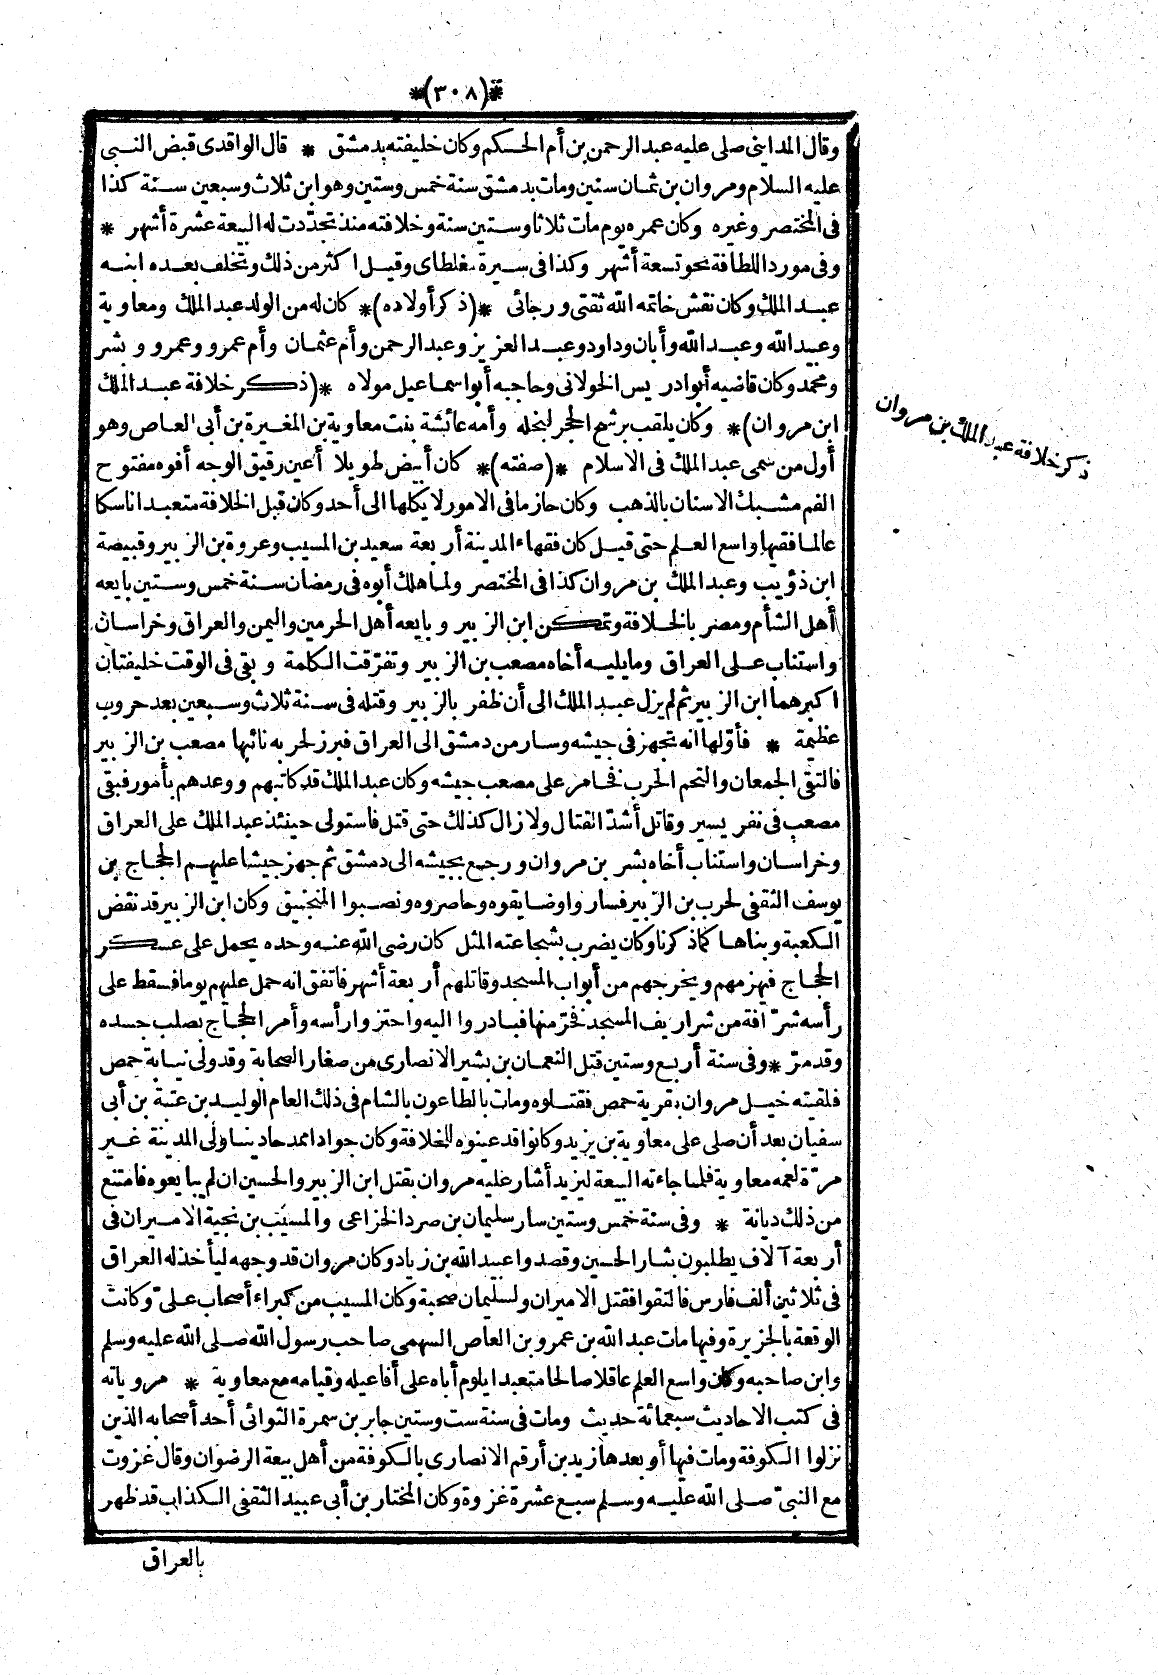 *(٣٠٨)*
وقال المدايني صلى عليه عبد الرحمن بن أم الحكم وكان خليفته بدمشق * قال الواقدى قبض النبي
عليه السلام ومروان بن ثمان سنين ومات بدمشق سنة خمس وستين وهو ابن ثلاث وسبعين سنة كذا
فى المختصر وغيره وكان عمره يوم مات ثلاثا وستين سنة وخلافته منذ تجدّدت له البيعة عشرة أشهر *
وفى مورد اللطافة نحو تسعة أشهر وكذا فى سيرة مغلطاى وقيل اكثر من ذلك وتخلف بعده ابنه
عبد الملك وكان نقش خاتمه الله ثقتى ورجائى *(ذكر أولاده)* كان له من الولد عبد الملك ومعاوية
وعبيد الله وعبد الله وأبان وداود وعبد العزيز وعبد الرحمن وأم عثمان وأم عمرو وعمرو وبشر
ومحمد وكان قاضيه أبو ادريس الخولانى وحاجبه أبو اسماعيل مولاه *(ذكر خلافة عبد الملك
ابن مروان)* وكان يلقب برشح الحجر لبخله وأمه عائشة بنت معاوية بن المغيرة بن أبى العاص وهو
أول من سمى عبد الملك فى الاسلام *(صفته)* كان أبيض طويلا أعين رقيق الوجه أفوه مفتوح
الفم مشبك الاسنان بالذهب وكان حازما فى الامور لا يكلها الى أحد وكان قبل الخلافة متعبدا ناسكا
عالما فقيها واسع العلم حتى قيل كان فقهاء المدينة أربعة سعيد بن المسيب وعروة بن الزبير وقبيصة
ابن ذؤيب وعبد الملك بن مروان كذا فى المختصر ولما هلك أبوه فى رمضان سنة خمس وستين بايعه
أهل الشأم ومصر بالخلافة وتمكن ابن الزبير وبايعه أهل الحرمين واليمن والعراق وخراسان
واستناب على العراق ومايليه أخاه مصعب بن الزبير وتفرّقت الكلمة وبقى فى الوقت خليفتان
اكبرهما ابن الزبير ثم لم يزل عبد الملك الى أن ظفر بالزبير وقتله فى سنة ثلاث وسبعين بعد حروب
عظيمة * فأوّلها انه تجهز فى جيشه وسار من دمشق الى العراق فبرز لحربه نائبها مصعب بن الزبير
فالتقى الجمعان والتحم الحرب فخامر على مصعب جيشه وكان عبد الملك قد كاتبهم ووعدهم بأمور فبقى
مصعب فى نفر يسير وقاتل أشدّ القتال ولا زال كذلك حتى قتل فاستولى حينئذ عبد الملك على العراق
وخراسان واستناب أخاه بشر بن مروان ورجع بجيشه الى دمشق ثم جهز جيشا عليهم الحجاج بن
يوسف الثقفى لحرب بن الزبير فساروا وضايقوه وحاصروه ونصبوا المنجنيق وكان ابن الزبير قد نقض
الكعبة وبناها كما ذكرنا وكان يضرب بشجاعته المثل كان رضى الله عنه وحده يحمل على عسكر
الحجاج فيهزمهم ويخرجهم من أبواب المسجد وقاتلهم أربعة أشهر فاتفق انه حمل عليهم يوما فسقط على
رأسه شرّافة من شراريف المسجد فخرّ منها فبادروا اليه واحتزوا رأسه وأمر الحجاج بصلب جسده
وقد مرّ * وفى سنة أربع وستين قتل النعمان بن بشير الانصارى من صغار الصحابة وقد ولى نيابة حمص
فلقيته خيل مروان بقرية حمص فقتلوه ومات بالطاعون بالشام فى ذلك العام الوليد بن عتبة بن أبى
سفيان بعد أن صلى على معاوية بن يزيد وكانوا قد عينوه للخلافة وكان جوادا ممدحا دينا ولى المدينة غير
مرّة لعمه معاوية فلما جاءته البيعة ليزيد أشار عليه مروان بقتل ابن الزبير والحسين ان لم يبايعوه فامتنع
من ذلك ديانة * وفى سنة خمس وستين سار سليمان بن صرد الخزاعى والمسيّب بن نجية الاميران فى
أربعة آلاف يطلبون بثار الحسين وقصدوا عبيد الله بن زياد وكان مروان قد وجهه ليأخذ له العراق
فى ثلاثين ألف فارس فالتقوا فقتل الاميران ولسليمان صحبة وكان المسيب من كبراء أصحاب علىّ وكانت
الوقعة بالجزيرة وفيها مات عبد الله بن عمرو بن العاص السهمى صاحب رسول الله صلى الله عليه وسلم
وابن صاحبه وكان واسع العلم عاقلا صالحا متعبدا يلوم أباه على أفاعيله وقيامه مع معاوية * مروياته
فى كتب الاحاديث سبعمائة حديث ومات فى سنة ست وستين جابر بن سمرة السوائى أحد أصحابه الذين
نزلوا الكوفة ومات فيها أو بعدها زيد بن أرقم الانصارى بالكوفة من أهل بيعة الرضوان وقال غزوت
مع النبىّ صلى الله عليه وسلم سبع عشرة غزوة وكان المختار بن أبى عبيد الثقفى الكذاب قد ظهر
بالعراق
ذكر خلافة عبد الملك بن مروان